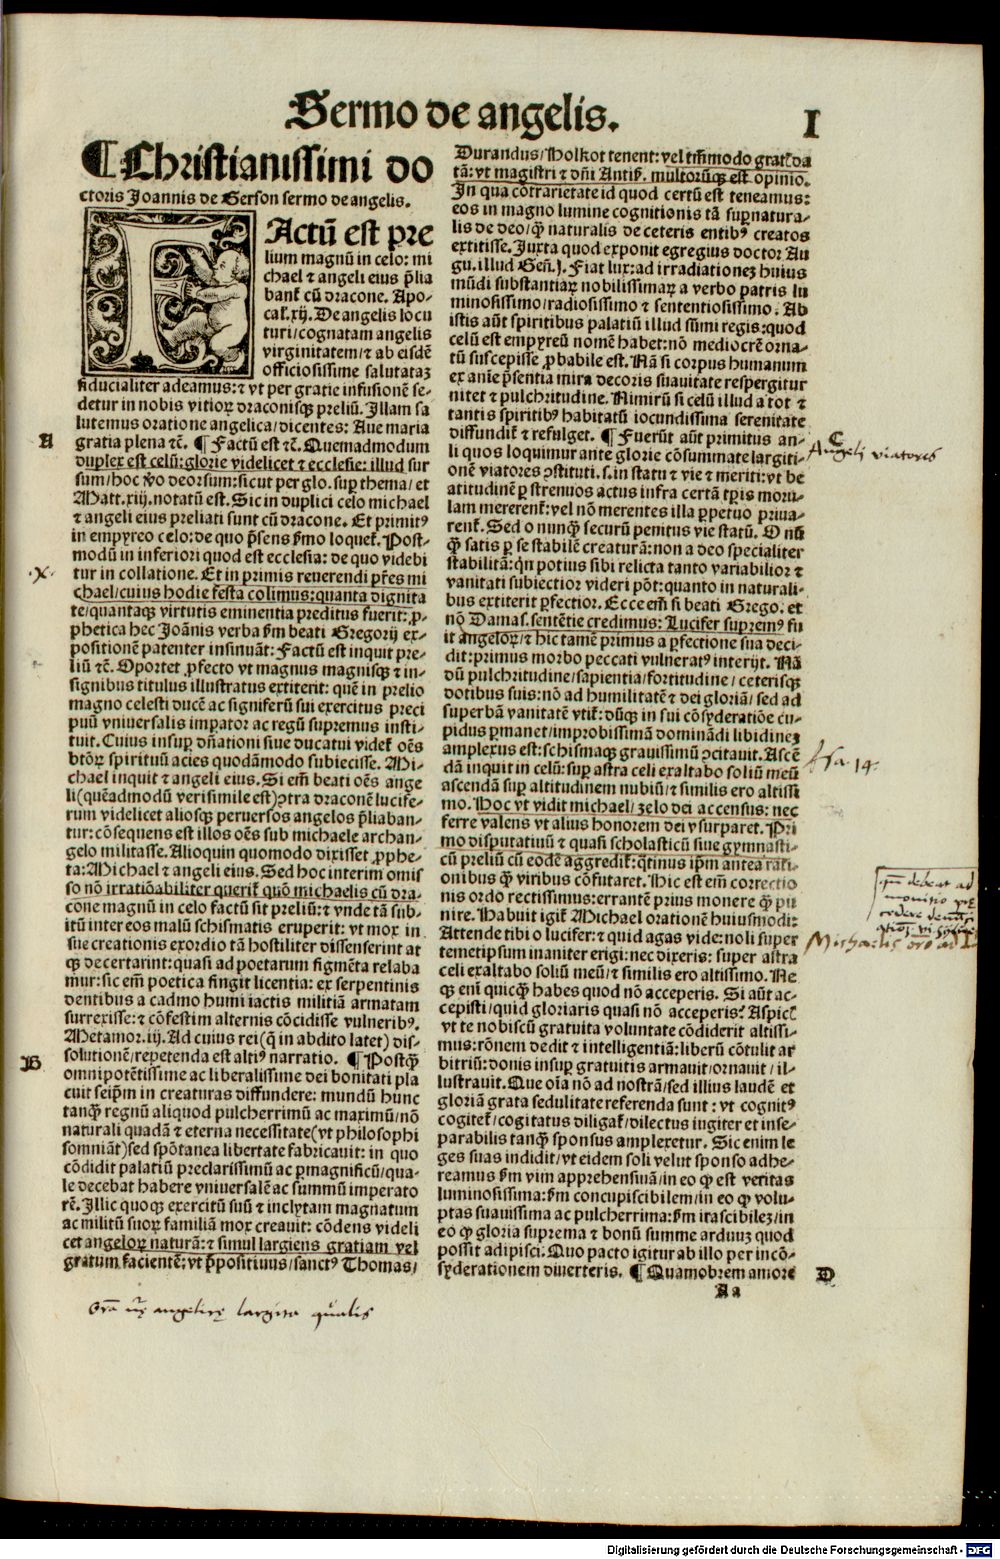 Sermo de angelis.
I
¶ Christianissimi do
ctoris Joannis de Gerson sermo de angelis.
FActū est pre
lium magnū in celo: mi
chael ⁊ angeli eius p̄lia
banť cū dracone. Apo⸗
cal. xij. De angelis locu
turi/cognatam angelis
virginitatem/⁊ ab eisdē
officiosissime salutataʒ
fiducialiter adeamus: ⁊ vt per gratie infusionē se⸗
detur in nobis vitioꝝ draconisqꝫ preliū. Illam sa
lutemus oratione angelica/dicentes: Aue maria
A
gratia plena ⁊c̄. ¶ Factū est ⁊c̄. Quemadmodum
duplex est celū: glorie videlicet ⁊ ecclesie: illud sur
sum/hoc v̊o deorsum: sicut per glo. suꝑ thema/ et
Matt. xiij. notatū est. Sic in duplici celo michael
⁊ angeli eius preliati sunt cū dracone. Et primitꝰ
in empyreo celo: de quo p̄sens s̄mo loqueť. Post⸗
modū in inferiori quod est ecclesia: de quo videbi
·X·
tur in collatione. Et in primis reuerendi pr̄es mi
chael/cuius hodie festa colimus: quanta dignita
te/quantaqꝫ virtutis eminentia preditus fuerit: ꝓ⸗
phetica hec Joānis verba s̄m beati Gregorij ex⸗
positionē patenter insinuāt: Factū est inquit pre⸗
liū ⁊c̄. Oportet ꝓfecto vt magnus magnisqꝫ ⁊ in⸗
signibus titulus illustratus extiterit: quē in prelio
magno celesti ducē ac signiferū sui exercitus preci
puū vniuersalis imꝑator ac regū supremus insti⸗
tuit. Cuius insuꝑ dn̄ationi siue ducatui videť oēs
btōꝝ spirituū acies quodāmodo subiecisse. Mi⸗
chael inquit ⁊ angeli eius. Si em̄ beati oēs ange
li (quēadmodū verisimile est) ꝯtra draconē lucife⸗
rum videlicet aliosqꝫ peruersos angelos p̄liaban⸗
tur: cōsequens est illos oēs sub michaele archan⸗
gelo militasse. Alioquin quomodo dixisset ꝓphe⸗
ta: Michael ⁊ angeli eius. Sed hoc interim omis
so nō irratiōabiliter queriť quō michaelis cū dra⸗
cone magnū in celo factū sit preliū: ⁊ vnde tā sub⸗
itū inter eos malū schismatis eruperit: vt mox in
sue creationis exordio tā hostiliter dissenserint at
qꝫ decertarint: quasi ad poetarum figmēta relaba
mur: sic em̄ poetica fingit licentia: ex serpentinis
dentibus a cadmo humi iactis militiā armatam
surrexisse: ⁊ cōfestim alternis cōcidisse vulneribꝰ.
Metamor. iij. Ad cuius rei (q̄ in abdito latet) dis⸗
B
solutionē/repetenda est altiꝰ narratio. ¶ Postq̄
omnipotētissime ac liberalissime dei bonitati pla
cuit seip̄m in creaturas diffundere: mundū hunc
tanq̄ regnū aliquod pulcherrimū ac maximū/nō
naturali quadā ⁊ eterna necessitate (vt philosophi
somniāt) sed spōtanea libertate fabricauit: in quo
cōdidit palatiū preclarissimū ac ꝑmagnificū/qua⸗
le decebat habere vniuersalē ac summū imperato
rē. Illic quoqꝫ exercitū suū ⁊ inclytam magnatum
ac militū suoꝝ familiā mox creauit: cōdens videli
cet angeloꝝ naturā: ⁊ simul largiens gratiam vel
gratum facientē: vt p̄positiuus/sanctꝰ Thomas/
Durandus/Holkot tenent: vel tm̄modo gratꝭ da
tā: vt magistri ⁊ dn̄i Antis̄. multorūqꝫ est opinio.
In qua cōtrarietate id quod certū est teneamus:
eos in magno lumine cognitionis tā suꝑnatura⸗
lis de deo/q̄ naturalis de ceteris entibꝰ creatos
extitisse. Juxta quod exponit egregius doctor Au
gu. illud Gen̄. j. Fiat lux: ad irradiationeʒ huius
mūdi substantiaꝝ nobilissimaꝝ a verbo patris lu
minosissimo/radiosissimo ⁊ sententiosissimo. Ab
istis aūt spiritibus palatiū illud s̄mi regis: quod
celū est empyreū nomē habet: nō mediocrē orna⸗
tū suscepisse ꝓbabile est. Nā si corpus humanum
ex aīe p̄sentia mira decoris suauitate respergitur
nitet ⁊ pulchritudine. Nimirū si celū illud a tot ⁊
tantis spiritibꝰ habitatū iocundissima serenitate
C
diffundiť ⁊ refulget. ¶ Fuerūt aūt primitus an⸗
Angelj viatores
li quos loquimur ante glorie cōsummate largiti⸗
onē viatores ꝯstituti. s. in statu ⁊ vie ⁊ meriti: vt be
atitudinē ꝑ strenuos actus infra certā tꝑis moru⸗
lam mererenť: vel nō merentes illa ꝑpetuo priua⸗
renť. Sed o nunq̄ securū penitus vie statū. O nū
q̄ satis ꝑ se stabilē creaturā: non a deo specialiter
stabilitā: qn̄ potius sibi relicta tanto variabilior ⁊
vanitati subiectior videri pōt: quanto in naturali⸗
bus extiterit ꝑfectior. Ecce em̄ si beati Grego. et
nō Damas. sentētie credimus: Lucifer supremꝰ fu
it angeloꝝ/⁊ hic tamē primus a ꝑfectione sua deci⸗
dit: primus morbo peccati vulneratꝰ interijt. Nā
dū pulchritudine/sapientia/fortitudine/ceterisqꝫ
dotibus suis: nō ad humilitatē ⁊ dei gloriā/sed ad
superbā vanitatē vtiť: dūqꝫ in sui cōsyderatiōe cu⸗
pidus ꝑmanet/improbissimā dominādi libidineʒ
amplexus est: schismaqꝫ grauissimū ꝯcitauit. Ascē
Isa. 14.
dā inquit in celū: suꝑ astra celi exaltabo soliū meū
ascendā suꝑ altitudinem nubiū/⁊ similis ero altissi
mo. Hoc vt vidit michael/zelo dei accensus: nec
ferre valens vt alius honorem dei vsurparet. Pri
mo disputatiuū ⁊ quasi scholasticū siue gymnasti⸗
cū preliū cū eodē aggrediť: q̄tinus ip̄m antea rati⸗
onibus q̄ viribus cōfutaret. Hic est em̄ correctio
nis ordo rectissimus: errantē prius monere q̄ pu
nire. Habuit igiť Michael orationē huiusmodi:
Michaelis oro ad
Attende tibi o lucifer: ⁊ quid agas vide: noli super
temetipsum inaniter erigi: nec dixeris: super astra
celi exaltabo soliū meū/⁊ similis ero altissimo. Ne
qꝫ enī quicq̄ habes quod nō acceperis. Si aūt ac⸗
cepisti/quid gloriaris quasi nō acceperis? Aspice
vt te nobiscū gratuita voluntate cōdiderit altissi⸗
mus: rōnem dedit ⁊ intelligentiā: liberū cōtulit ar
bitriū: donis insuꝑ gratuitis armauit/ornauit/il⸗
lustrauit. Que oīa nō ad nostrā/sed illius laudē et
gloriā grata sedulitate referenda sunt: vt cognitꝰ
cogiteť/cogitatus diligať/dilectus iugiter et inse⸗
parabilis tanq̄ sponsus amplexetur. Sic enim le
ges suas indidit/vt eidem soli velut sponso adhe⸗
reamus s̄m vim apprehensiuā/in eo ꝙ est veritas
luminosissima: s̄m concupiscibilem/in eo ꝙ volu⸗
ptas suauissima ac pulcherrima: s̄m irascibileʒ/in
eo ꝙ gloria suprema ⁊ bonū summe arduuʒ quod
possit adipisci. Quo pacto igitur ab illo per incō⸗
syderationem diuerteris. ¶ Quamobrem amore
D
Aa
angelice largitio qualis
Digitalisierung gefördert durch die Deutsche Forschungsgemeinschaft - DFG